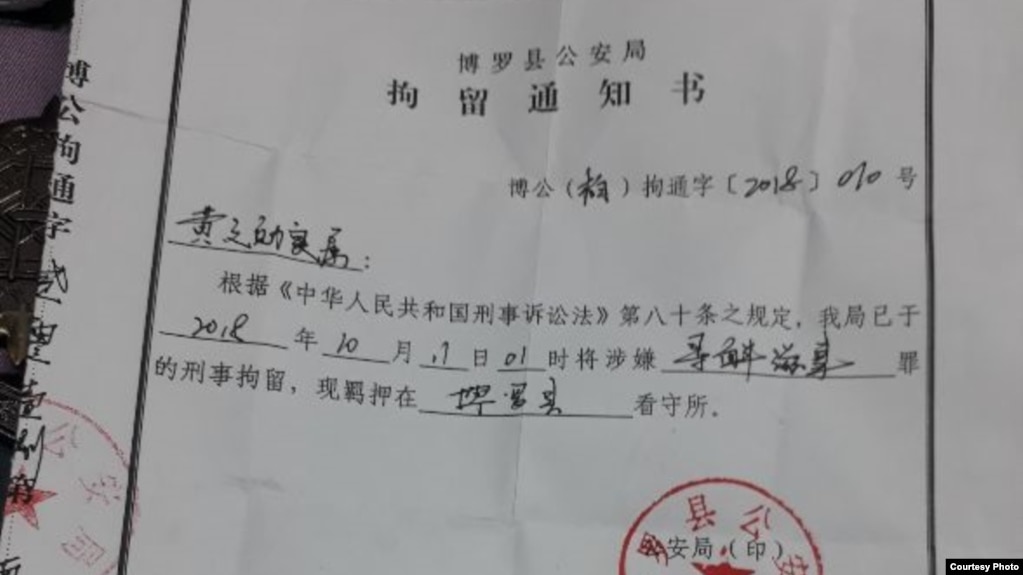 博罗县公安局
拘留通知书
博公（柏）拘通字〔2018〕010号
黄 家属：
根据《中华人民共和国刑事诉讼法》第八十条之规定，我局已于
2018年10月 日01时将涉嫌寻衅滋事罪
的刑事拘留，现羁押在博罗县看守所。
安局（印）
罗县公安
博公拘通字
公安局
Courtesy Photo